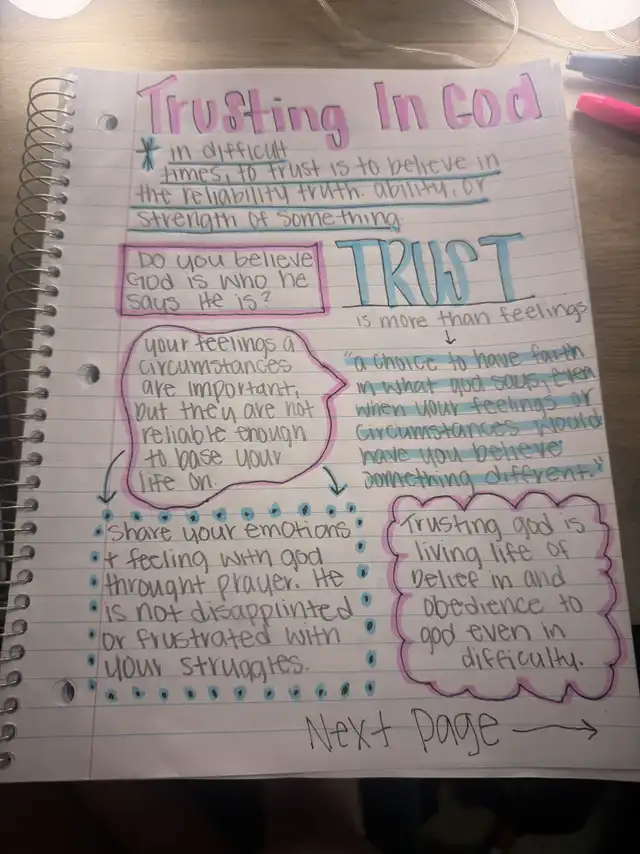 Trusting In God
* in difficult
times, to trust is to believe in
the reliability truth. ability, or
strength of something.
Do you believe
God is who he
says He is?
TRUST
is more than feelings
your feelings a
circumstances
are important,
but they are not
reliable enough
to base your
life on.
"a choice to have faith
in what god says, even
when your feelings or
circumstances would
have you believe
something different."
Share your emotions
+ feeling with god
throught prayer. He
is not disapplinted
or frustrated with
your struggles.
Trusting god is
living life of
belief in and
obedience to
god even in
difficulty.
Next page